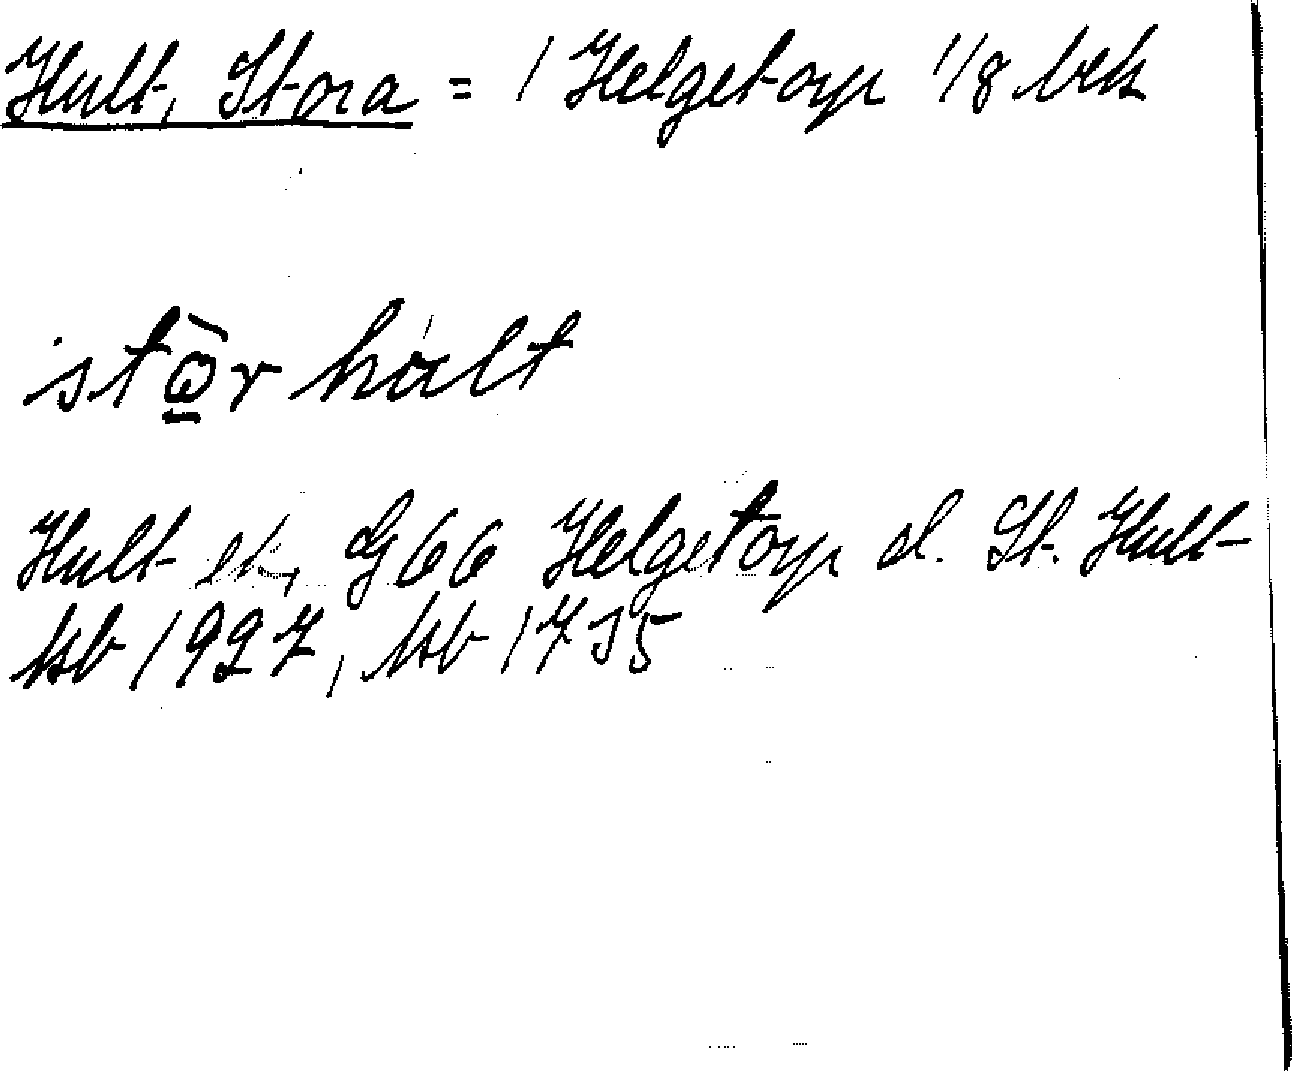 Hult, Stora = 1 Helgetorp 1/8 mtl
stŏ̱r hult
Hult ek, G66 Helgetorp el. St. Hult
kb 1927, kb 1735